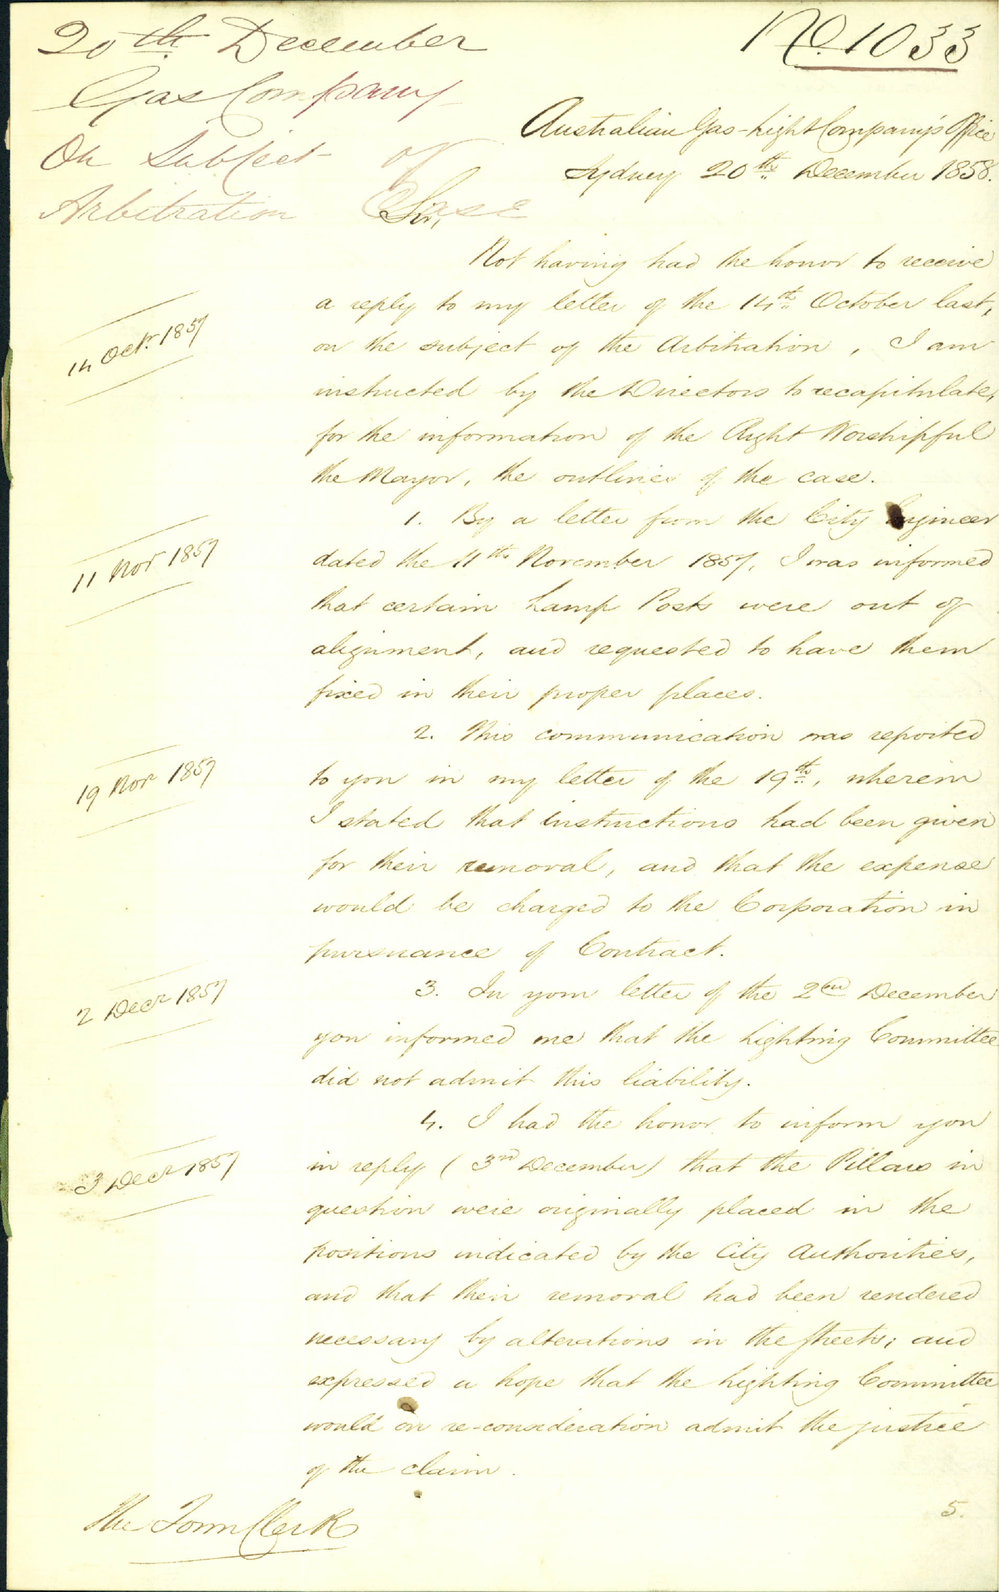 20th December
Gas Company
On Subject of
Arbitration Case
No. 1033
Australian Gas-Light Company's Office
Sydney 20th December 1858.
Sir,
Not having had the honor to receive
a reply to my letter of the 14th October last,
on the subject of the Arbitration, I am
instructed by the Directors to recapitulate,
for the information of the Right Worshipful
the Mayor, the outlines of the case.
14 Octr. 1857
1. By a letter from the City Engineer
dated the 11th November 1857, I was informed
that certain Lamp Posts were out of
alignment, and requested to have them
fixed in their proper places.
11 Novr 1857
2. This communication was reported
to you in my letter of the 19th, wherein
I stated that instructions had been given
for their removal, and that the expense
would be charged to the Corporation in
pursuance of Contract.
19 Novr 1857
3. In your letter of the 2nd December
you informed me that the Lighting Committee
did not admit this liability.
2 Decr 1857
4. I had the honor to inform you
in reply (3rd December) that the Pillars in
question were originally placed in the
positions indicated by the City Authorities,
and that their removal had been rendered
necessary by alterations in the streets; and
expressed a hope that the Lighting Committee
would on re-consideration admit the justice
of the claim.
3 Decr 1857
5.
The Town Clerk